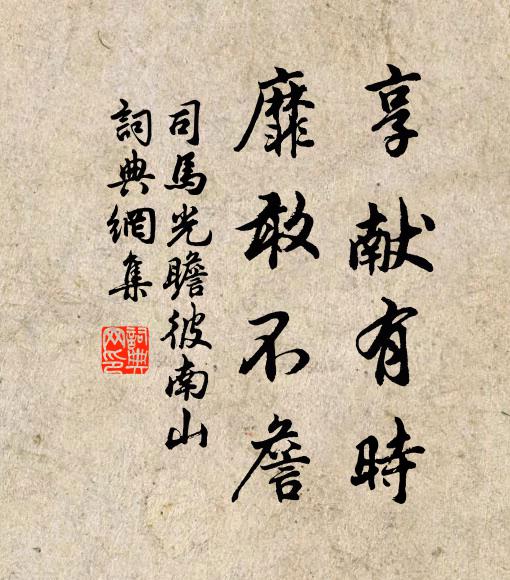 享献有時
靡敢不詹
司馬光瞻彼南山
詞典網集
詞典
网印